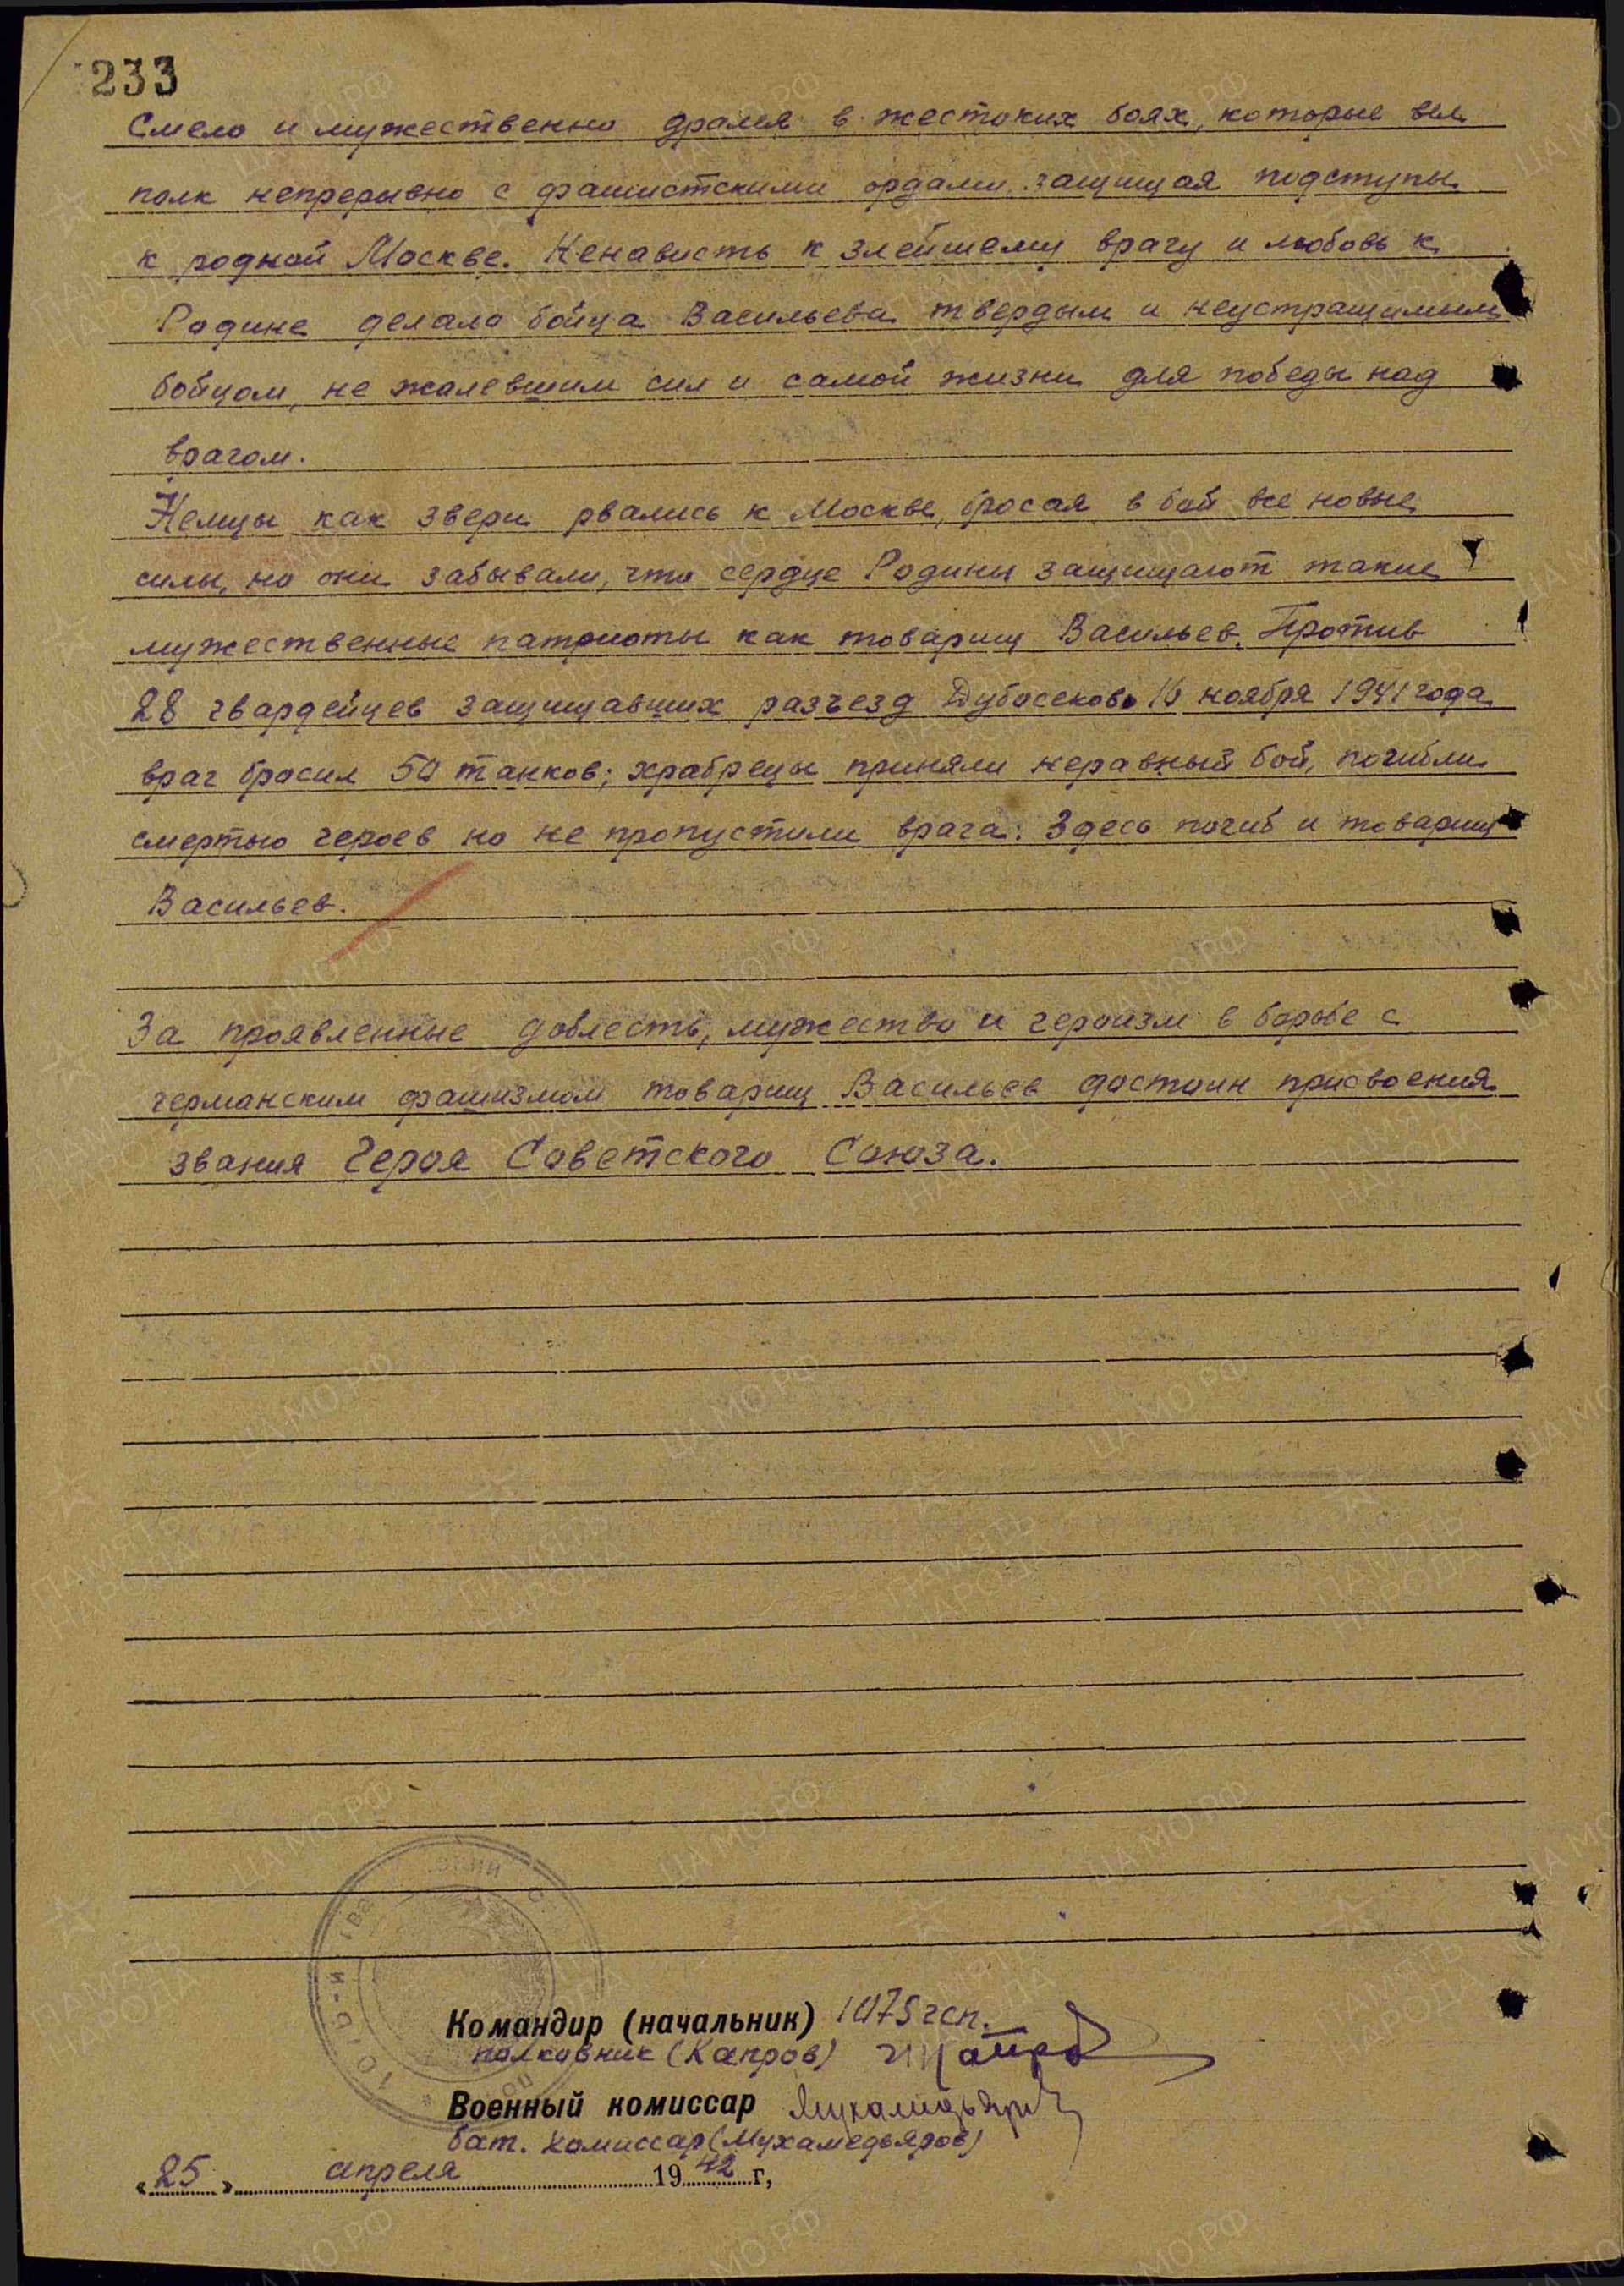 233
Смело и мужественно дрался в жестоких боях, которые вел
полк непрерывно с фашистскими ордами, защищая подступы
к родной Москве. Ненависть к злейшему врагу и любовь к
Родине делала бойца Васильева твердым и неустрашимым
бойцом, не жалевшим сил и самой жизни для победы над
врагом.
Немцы как звери рвались к Москве, бросая в бой все новые
силы, но они забывали, что сердце Родины защищают такие
мужественные патриоты как товарищ Васильев. Против
28 гвардейцев защищавших разъезд Дубосеково 16 ноября 1941 года
враг бросил 50 танков; храбрецы приняли неравный бой, погибли
смертью героев но не пропустили врага. Здесь погиб и товарищ
Васильев.
За проявленные доблесть, мужество и героизм в борьбе с
германским фашизмом товарищ Васильев достоин присвоения
звания Героя Советского Союза.
Командир (начальник) 1075 гсп.
полковник (Капров)
Военный комиссар
бат. комиссар (Мухамедьяров)
«25» апреля 1942 г,
ЦА МО РФ
ПАМЯТЬ НАРОДА